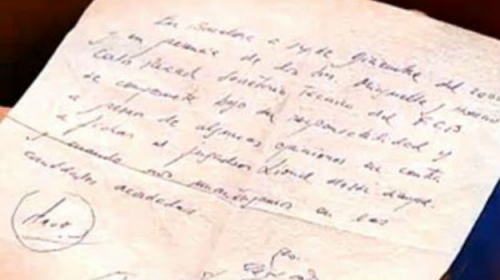 En Barcelona a 14 de Diciembre del
y en presencia de los Minguella y Horacio
Carles Rexach Secretario Técnico del F.C.B
se compromete bajo su responsabilidad y
a pesar de algunas opiniones en contra
a fichar al jugador Lionel Messi siempre
y cuando nos mantengamos en las
cantidades acordadas